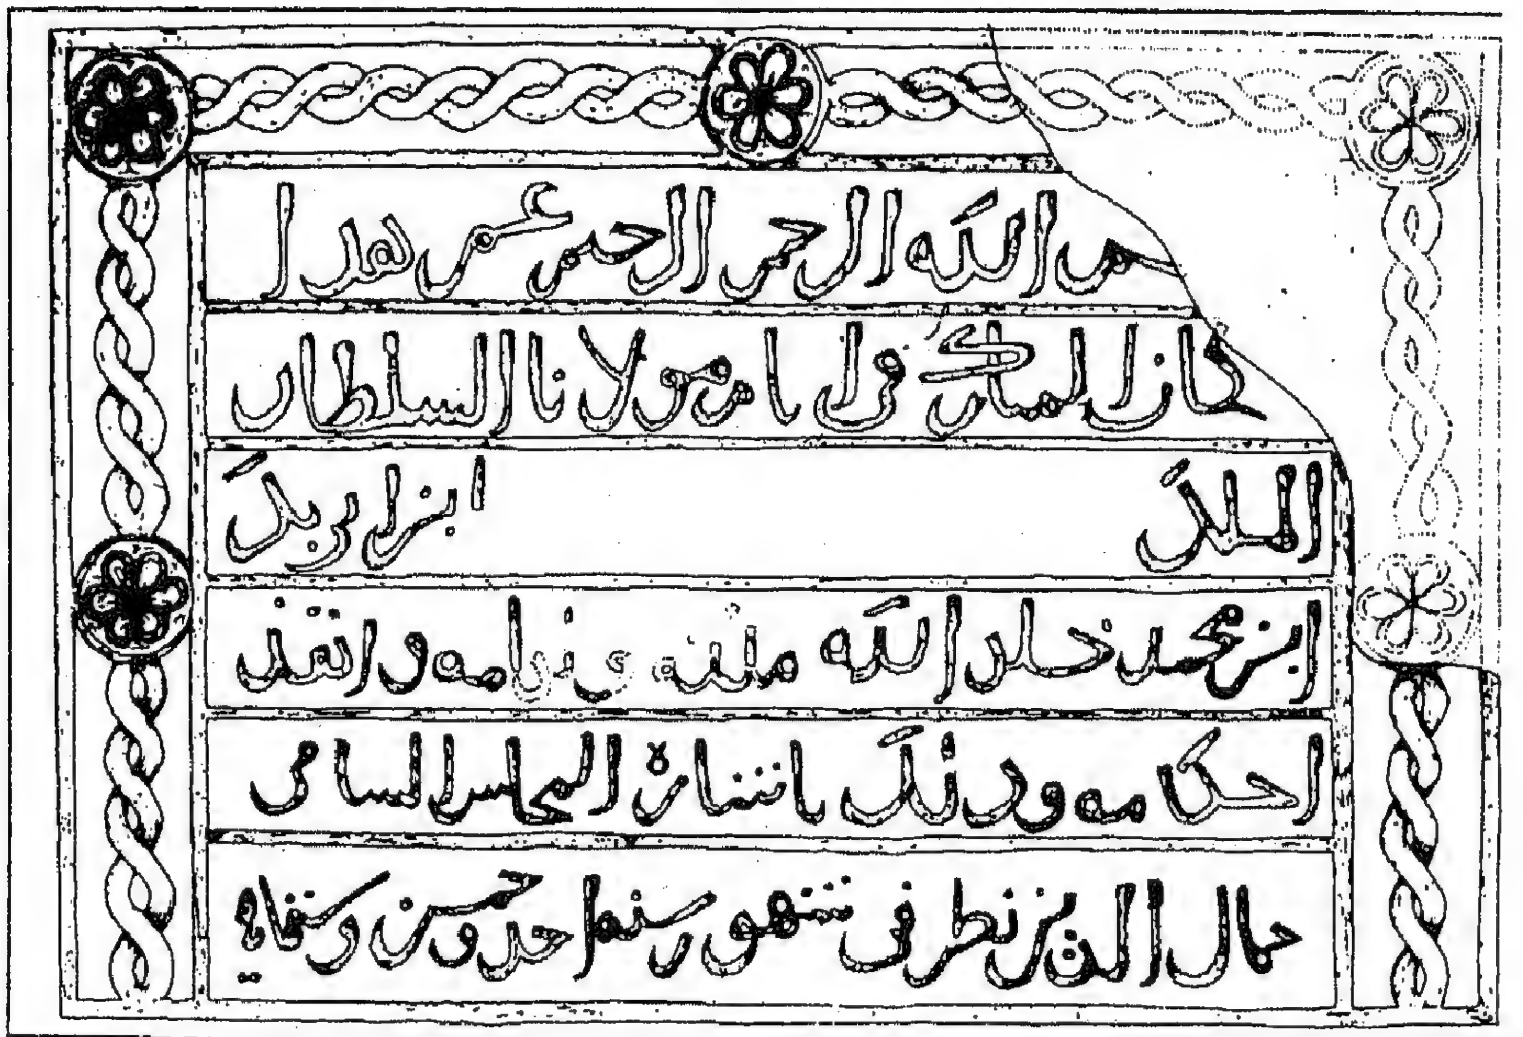 بسم الله الرحمن الرحيم عمر هذا ا
لخان المبارك في ايام مولانا السلطان
الملك ابن
ابن محمد خلد الله ايامه وانفذ
احكامه وذلك باشارة المجلس السامي
جمال الدين نطر في شهور سنة احد وخمسين وستمايه